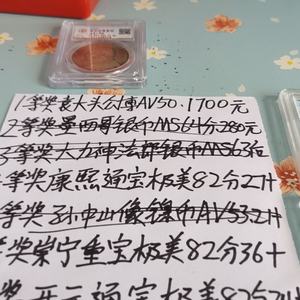 1等奖袁大头公博AV50.1700元
2等奖墨西哥银币MS64分280元
3等奖大力神法郎银币MS63
等奖康熙通宝极美82分
等奖孙中山像镍币AV53
等奖崇宁重宝极美82分36+
奖开元通宝极美82